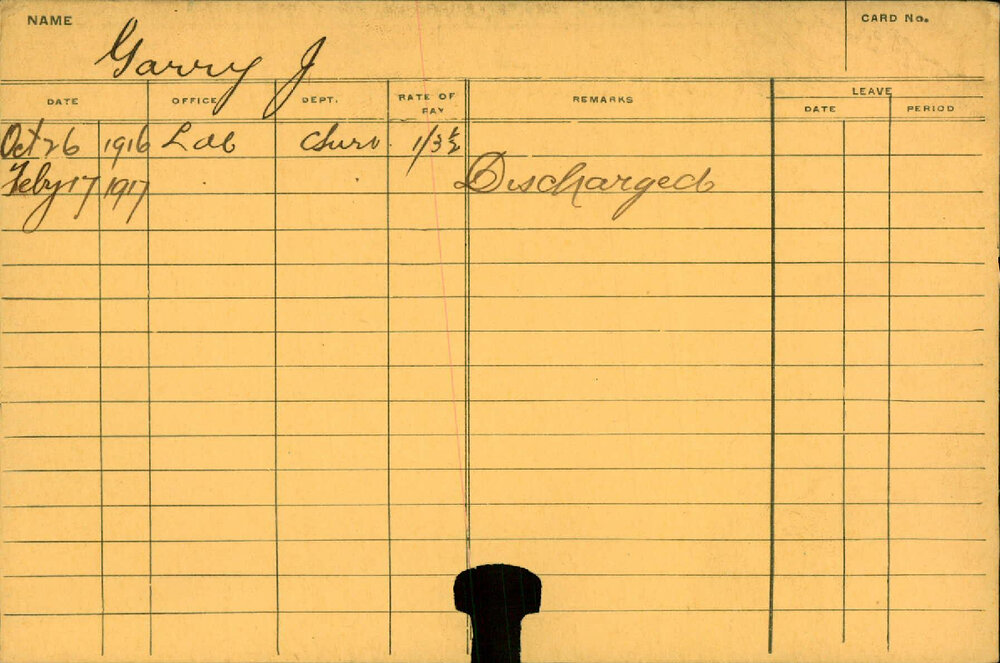 NAME
CARD No.
Garry J
DATE OFFICE DEPT. RATE OF PAY REMARKS LEAVE
DATE PERIOD
Oct 26 1916 Lab 1/3½
Feby 17 1917 Discharged